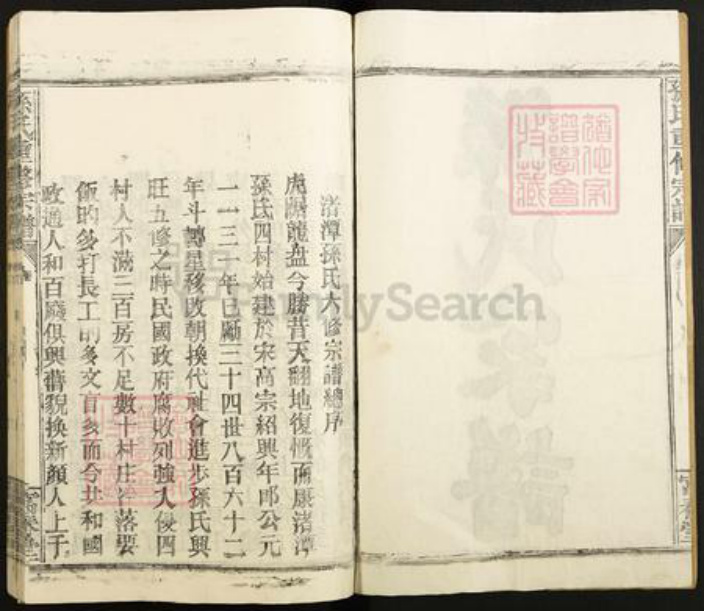 孫氏重修宗譜
渚潭孫氏六修宗譜總序
虎踞龍盘今勝昔天翻地復慨而康渚潭
孫氏四村始建於宋高宗紹興年即公元
一一三一年已勵三十四世八百六十二
年斗轉星移改朝換代社會進步孫氏興
旺五修之時民國政府腐敗列強入侵四
村人不滿三百房不足數十村庄冷落要
飯的多打長工的多文盲多而今共和國
政通人和百廢俱興舊貌換新顏人上千
孫氏重修宗譜
FamilySearch
譜學會
特藏